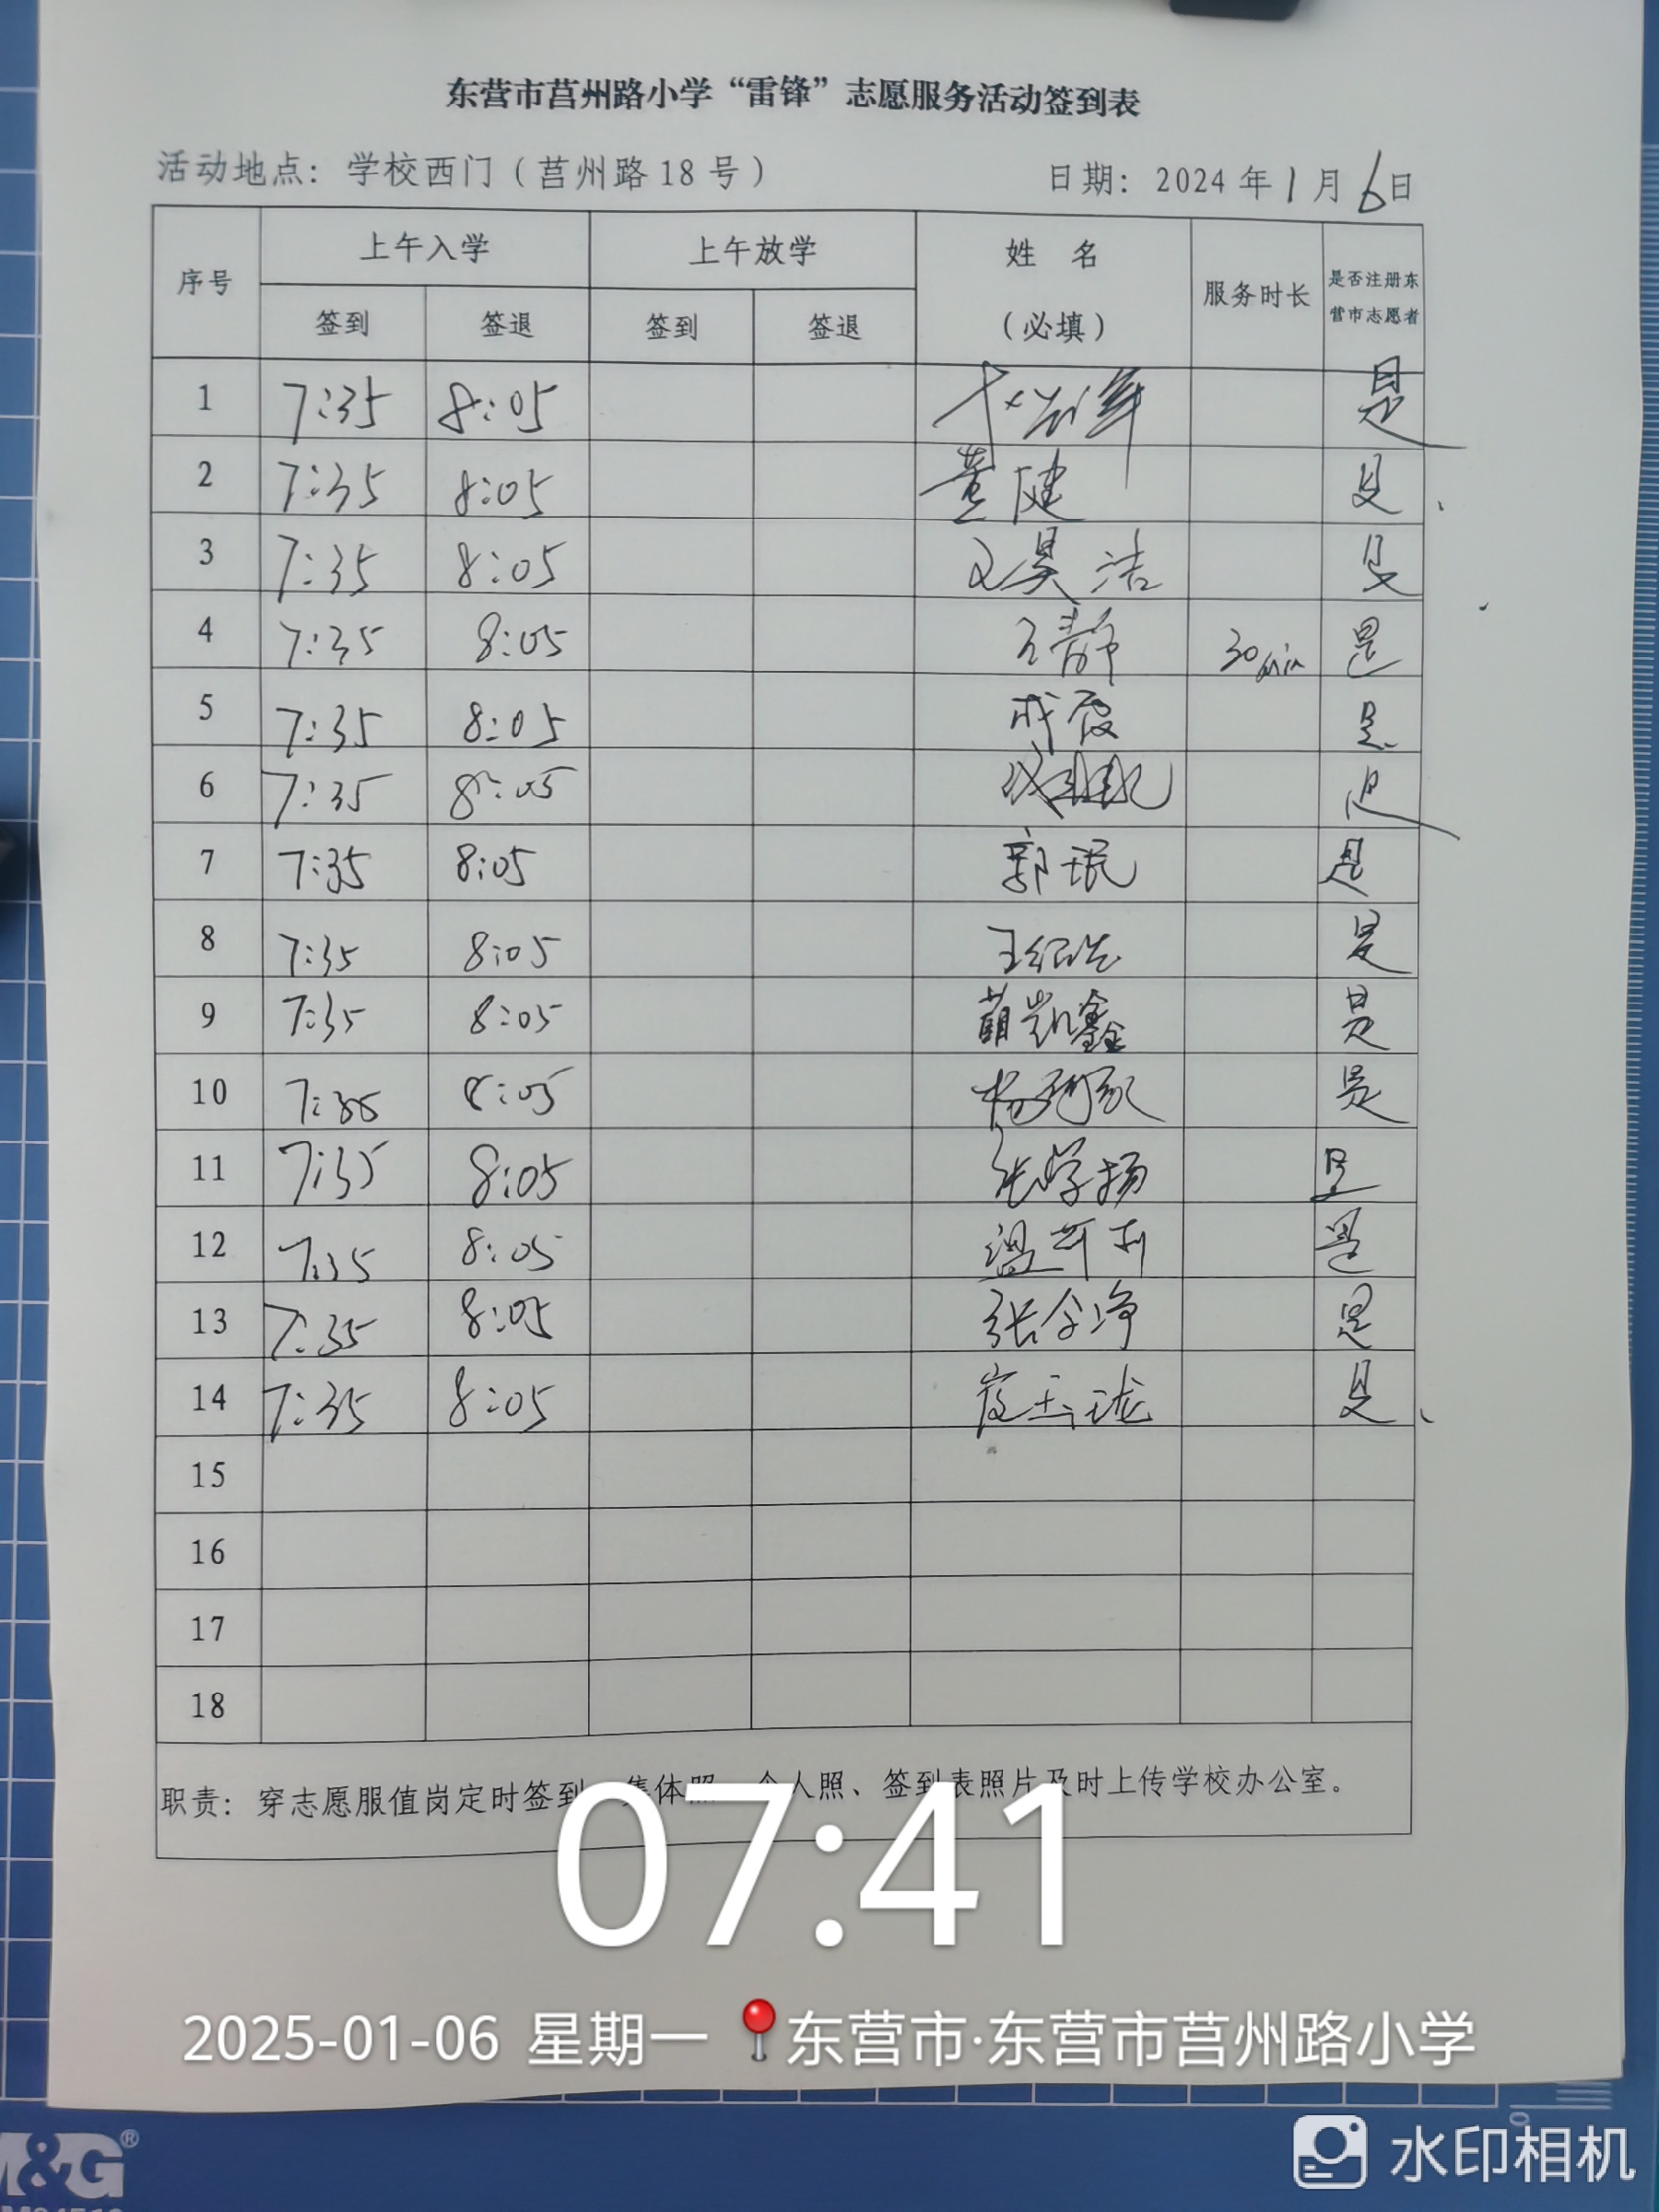 东营市莒州路小学“雷锋”志愿服务活动签到表
活动地点：学校西门（莒州路18号） 日期：2024年1月6日
序号 上午入学 上午放学 姓 名 服务时长 是否注册东
签到 签退 签到 签退 （必填） 营市志愿者
1 7:35 8:05 是
2 7:35 8:05 董健 是
3 7:35 8:05 是
4 7:35 8:05 王静 30min 是
5 7:35 8:05 是
6 7:35 8:05 是
7 7:35 8:05 郭珉 是
8 7:35 8:05 是
9 7:35 8:05 凯鑫 是
10 7:35 8:05 是
11 7:35 8:05 张学扬 是
12 7:35 8:05 温 是
13 7:35 8:05 张令净 是
14 7:35 8:05 崔玉珑 是
15
16
17
18
职责：穿志愿服值岗定时签到 集体照 个人照、签到表照片及时上传学校办公室。
07:41
2025-01-06 星期一 东营市·东营市莒州路小学
M&G®
水印相机